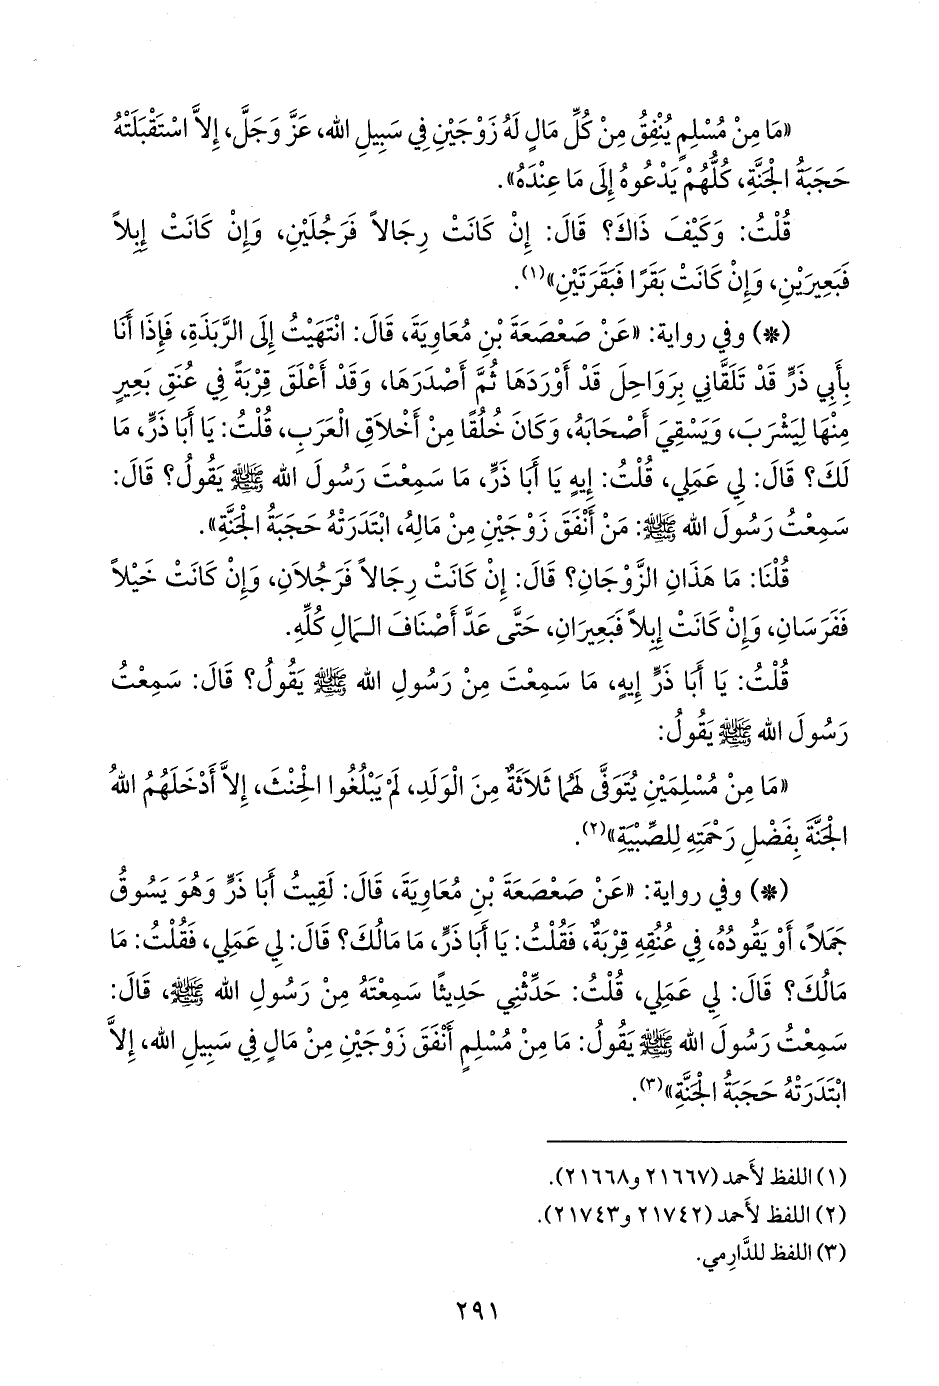 «مَا مِنْ مُسْلِمٍ يُنْفِقُ مِنْ كُلِّ مَالٍ لَهُ زَوْجَيْنِ فِي سَبِيلِ الله، عَزَّ وَجَلَّ، إِلاَّ اسْتَقْبَلَتْهُ
حَجَبَةُ الْجَنَّةِ، كُلُّهُمْ يَدْعُوهُ إِلَى مَا عِنْدَهُ».
قُلْتُ: وَكَيْفَ ذَاكَ؟ قَالَ: إِنْ كَانَتْ رِجَالاً فَرَجُلَيْنِ، وَإِنْ كَانَتْ إِبِلاً
فَبَعِيرَيْنِ، وَإِنْ كَانَتْ بَقَرًا فَبَقَرَتَيْنِ»(١).
(*) وفي رواية: «عَنْ صَعْصَعَةَ بْنِ مُعَاوِيَةَ، قَالَ: انْتَهَيْتُ إِلَى الرَّبَذَةِ، فَإِذَا أَنَا
بِأَبِي ذَرٍّ قَدْ تَلَقَّانِي بِرَوَاحِلَ قَدْ أَوْرَدَهَا ثُمَّ أَصْدَرَهَا، وَقَدْ أَعْلَقَ قِرْبَةً فِي عُنُقِ بَعِيرٍ
مِنْهَا لِيَشْرَبَ، وَيَسْقِيَ أَصْحَابَهُ، وَكَانَ خُلُقًا مِنْ أَخْلاَقِ الْعَرَبِ، قُلْتُ: يَا أَبَا ذَرٍّ، مَا
لَكَ؟ قَالَ: لِي عَمَلِي، قُلْتُ: إِيهِ يَا أَبَا ذَرٍّ، مَا سَمِعْتَ رَسُولَ الله ﷺ يَقُولُ؟ قَالَ:
سَمِعْتُ رَسُولَ الله ﷺ: مَنْ أَنْفَقَ زَوْجَيْنِ مِنْ مَالِهِ، ابْتَدَرَتْهُ حَجَبَةُ الْجَنَّةِ».
قُلْنَا: مَا هَذَانِ الزَّوْجَانِ؟ قَالَ: إِنْ كَانَتْ رِجَالاً فَرَجُلاَنِ، وَإِنْ كَانَتْ خَيْلاً
فَفَرَسَانِ، وَإِنْ كَانَتْ إِبِلاً فَبَعِيرَانِ، حَتَّى عَدَّ أَصْنَافَ الْمَالِ كُلِّهِ.
قُلْتُ: يَا أَبَا ذَرٍّ إِيهِ، مَا سَمِعْتَ مِنْ رَسُولِ الله ﷺ يَقُولُ؟ قَالَ: سَمِعْتُ
رَسُولَ الله ﷺ يَقُولُ:
«مَا مِنْ مُسْلِمَيْنِ يُتَوَفَّى لَهُمَا ثَلاَثَةٌ مِنَ الْوَلَدِ، لَمْ يَبْلُغُوا الْحِنْثَ، إِلاَّ أَدْخَلَهُمُ اللهُ
الْجَنَّةَ بِفَضْلِ رَحْمَتِهِ لِلصِّبْيَةِ»(٢).
(*) وفي رواية: «عَنْ صَعْصَعَةَ بْنِ مُعَاوِيَةَ، قَالَ: لَقِيتُ أَبَا ذَرٍّ وَهُوَ يَسُوقُ
جَمَلاً، أَوْ يَقُودُهُ، فِي عُنُقِهِ قِرْبَةٌ، فَقُلْتُ: يَا أَبَا ذَرٍّ، مَا مَالُكَ؟ قَالَ: لِي عَمَلِي، فَقُلْتُ: مَا
مَالُكَ؟ قَالَ: لِي عَمَلِي، قُلْتُ: حَدِّثْنِي حَدِيثًا سَمِعْتَهُ مِنْ رَسُولِ الله ﷺ، قَالَ:
سَمِعْتُ رَسُولَ الله ﷺ يَقُولُ: مَا مِنْ مُسْلِمٍ أَنْفَقَ زَوْجَيْنِ مِنْ مَالٍ فِي سَبِيلِ الله، إِلاَّ
ابْتَدَرَتْهُ حَجَبَةُ الْجَنَّةِ»(٣).
(١) اللفظ لأَحمد (٢١٦٦٧ و٢١٦٦٨).
(٢) اللفظ لأَحمد (٢١٧٤٢ و٢١٧٤٣).
(٣) اللفظ للدَّارِمي.
٢٩١